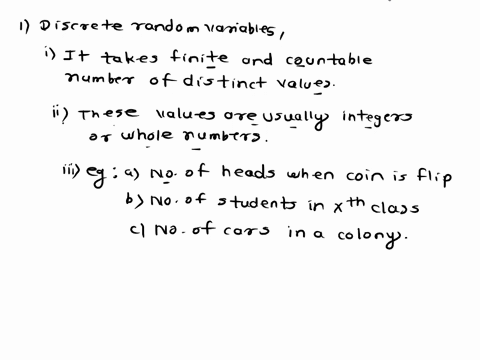 1) Discrete random variables,
i) It takes finite and countable
number of distinct values.
ii) These values are usually integers
or whole numbers.
iii) eg : a) No. of heads when coin is flip
b) No. of students in xth class
c) No. of cars in a colony.